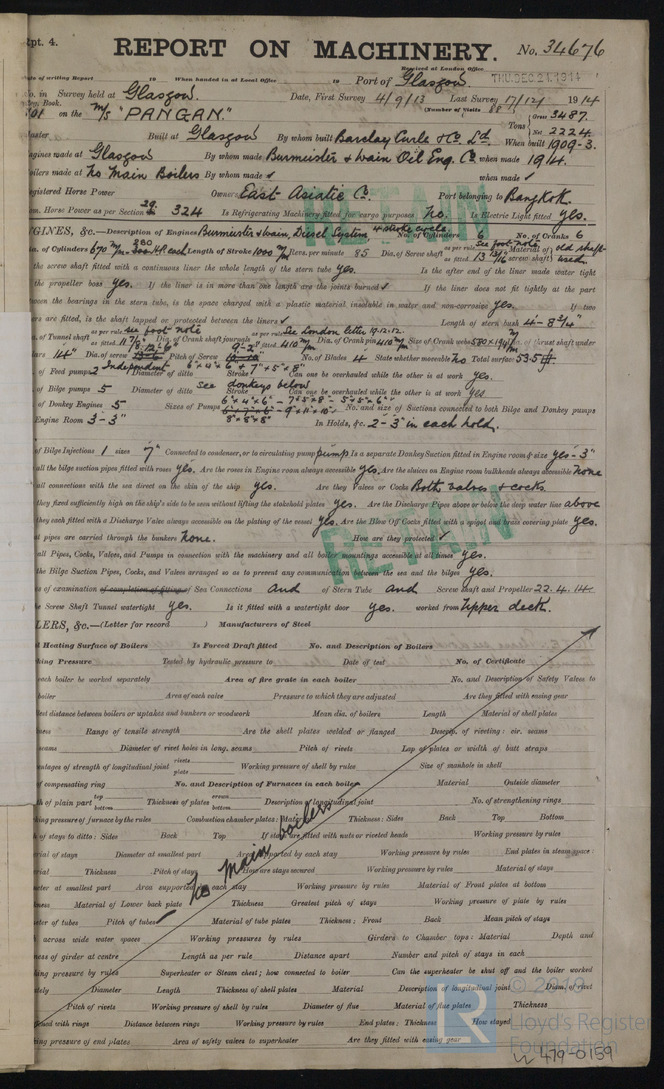 Rpt. 4.
REPORT ON MACHINERY. No. 34676
Received at London Office THU. DEC 24. 1914
of writing Report 19 When handed in at Local Office 19 Port of Glasgow.
No. in Survey held at Glasgow. Date, First Survey 4/9/13 Last Survey 17/12/ 1914
Book. (Number of Visits
on the m/s "PANGAN." Tons Gross 3487. Net 2224.
Built at Glasgow By whom built Barclay Curle & Co. Ld. When built 1909-3.
Engines made at Glasgow By whom made Burmeister & Wain Oil Eng. Co. when made 1914.
Boilers made at No Main Boilers By whom made ✓ when made ✓
Registered Horse Power Owners East Asiatic Co. Port belonging to Bangkok.
Nom. Horse Power as per Section 28 324 Is Refrigerating Machinery fitted for cargo purposes No. Is Electric Light fitted yes.
ENGINES, &c.—Description of Engines Burmeister & Wain, Diesel System 4 stroke cycle. No. of Cylinders 6 No. of Cranks 6
Dia. of Cylinders 670 m/m Length of Stroke 1000 m/m Revs. per minute 85 Dia. of Screw shaft as per rule See foot note as fitted 13 13/16 Material of screw shaft old shaft used.
the screw shaft fitted with a continuous liner the whole length of the stern tube yes. Is the after end of the liner made water tight
the propeller boss yes. If the liner is in more than one length are the joints burned ✓ If the liner does not fit tightly at the part
between the bearings in the stern tube, is the space charged with a plastic material insoluble in water and non-corrosive yes. If two
liners are fitted, is the shaft lapped or protected between the liners ✓ Length of stern bush 4'-8 3/4"
of Tunnel shaft as per rule see foot note as fitted Dia. of Crank shaft journals as per rule See London letter 19.12.12. as fitted 410 m/m Dia. of Crank pin 410 m/m Size of Crank webs Dia. of thrust shaft under
collars 14" Dia. of screw Pitch of Screw No. of Blades 4 State whether moveable No Total surface 53.5
of Feed pumps 2 Independent Diameter of ditto 6"x4"x6" & 7"x5"x8" Stroke Can one be overhauled while the other is at work yes.
of Bilge pumps 5 Diameter of ditto See donkeys below Stroke Can one be overhauled while the other is at work yes
of Donkey Engines 5 Sizes of Pumps No. and size of Suctions connected to both Bilge and Donkey pumps
Engine Room 3-3" In Holds, &c. 2-3" in each hold.
of Bilge Injections 1 sizes 7" Connected to condenser, or to circulating pump pump Is a separate Donkey Suction fitted in Engine room & size yes-3"
all the bilge suction pipes fitted with roses yes. Are the roses in Engine room always accessible yes. Are the sluices on Engine room bulkheads always accessible none
all connections with the sea direct on the skin of the ship yes. Are they Valves or Cocks Both valves & cocks.
they fixed sufficiently high on the ship's side to be seen without lifting the stokehold plates yes. Are the Discharge Pipes above or below the deep water line above
they each fitted with a Discharge Valve always accessible on the plating of the vessel yes. Are the Blow Off Cocks fitted with a spigot and brass covering plate yes.
at pipes are carried through the bunkers None. How are they protected ✓
all Pipes, Cocks, Valves, and Pumps in connection with the machinery and all boiler mountings accessible at all times yes.
the Bilge Suction Pipes, Cocks, and Valves arranged so as to prevent any communication between the sea and the bilges yes.
of examination of completion of fitting of Sea Connections and of Stern Tube and Screw shaft and Propeller 22.4.14
the Screw Shaft Tunnel watertight yes. Is it fitted with a watertight door yes. worked from Upper deck.
RETAIN
RETAIN
BOILERS, &c.—(Letter for record ) Manufacturers of Steel
Heating Surface of Boilers Is Forced Draft fitted No. and Description of Boilers
Working Pressure Tested by hydraulic pressure to Date of test No. of Certificate
each boiler be worked separately Area of fire grate in each boiler No. and Description of Safety Valves to
boiler Area of each valve Pressure to which they are adjusted Are they fitted with easing gear
distance between boilers or uptakes and bunkers or woodwork Mean dia. of boilers Length Material of shell plates
Range of tensile strength Are the shell plates welded or flanged Descrip. of riveting: cir. seams
seams Diameter of rivet holes in long. seams Pitch of rivets Lap of plates or width of butt straps
percentages of strength of longitudinal joint rivets plate Working pressure of shell by rules Size of manhole in shell
of compensating ring No. and Description of Furnaces in each boiler Material Outside diameter
Length of plain part top bottom Thickness of plates crown bottom Description of longitudinal joint No. of strengthening rings
Working pressure of furnace by the rules Combustion chamber plates: Material Thickness: Sides Back Top Bottom
of stays to ditto: Sides Back Top If stays are fitted with nuts or riveted heads Working pressure by rules
Material of stays Diameter at smallest part Area supported by each stay Working pressure by rules End plates in steam space:
Material Thickness Pitch of stays How are stays secured Working pressure by rules Material of stays
Diameter at smallest part Area supported by each stay Working pressure by rules Material of Front plates at bottom
Thickness Material of Lower back plate Thickness Greatest pitch of stays Working pressure of plate by rules
Diameter of tubes Pitch of tubes Material of tube plates Thickness: Front Back Mean pitch of stays
across wide water spaces Working pressures by rules Girders to Chamber tops: Material Depth and
thickness of girder at centre Length as per rule Distance apart Number and pitch of stays in each
Working pressure by rules Superheater or Steam chest; how connected to boiler Can the superheater be shut off and the boiler worked
separately Diameter Length Thickness of shell plates Material Description of longitudinal joint Diam. of rivet
Pitch of rivets Working pressure of shell by rules Diameter of flue Material of flue plates Thickness
stiffened with rings Distance between rings Working pressure by rules End plates: Thickness How stayed
Working pressure of end plates Area of safety valves to superheater Are they fitted with easing gear
No main boilers
© 2019
LR
Lloyd's Register
Foundation
W479-0159